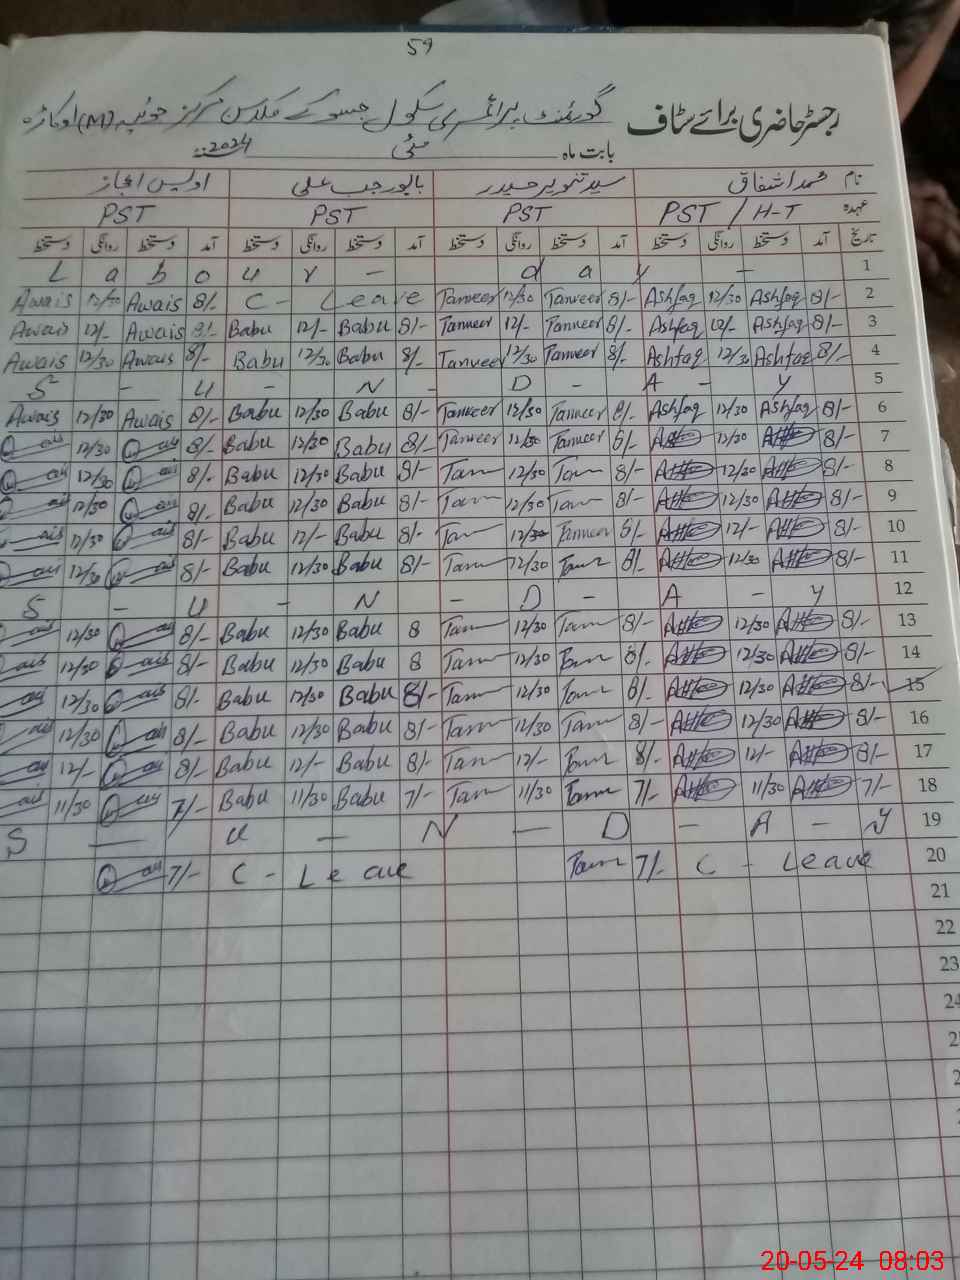 59
رجسٹر حاضری برائے سٹاف گورنمنٹ پرائمری سکول جسوکے مرکز جوئیہ (M) اوکاڑہ
بابت ماہ مئی 2024
نام محمد اشفاق سید تنویر حیدر بابو رجب علی اویس اعجاز
عہدہ PST / H-T PST PST PST
تاریخ آمد دستخط روانگی دستخط آمد دستخط روانگی دستخط آمد دستخط روانگی دستخط آمد دستخط روانگی دستخط
L a b o u r - d a y - 1
Awais 12/30 Awais 8/- C - Leave Tanveer 12/30 Tanveer 8/- Ashfaq 12/30 Ashfaq 8/- 2
Awais 12/- Awais 8/- Babu 12/- Babu 8/- Tanveer 12/- Tanveer 8/- Ashfaq 12/- Ashfaq 8/- 3
Awais 12/30 Awais 8/- Babu 12/30 Babu 8/- Tanveer 12/30 Tanveer 8/- Ashfaq 12/30 Ashfaq 8/- 4
S - U - N - D - A - Y 5
Awais 12/30 Awais 8/- Babu 12/30 Babu 8/- Tanveer 12/30 Tanveer 8/- Ashfaq 12/30 Ashfaq 8/- 6
12/30 8/- Babu 12/30 Babu 8/- Tanveer 12/30 Tanveer 8/- 12/30 8/- 7
12/30 8/- Babu 12/30 Babu 8/- Tam 12/30 Tam 8/- 12/30 8/- 8
12/30 8/- Babu 12/30 Babu 8/- Tam 12/30 Tam 8/- 12/30 8/- 9
12/30 8/- Babu 12/- Babu 8/- Tam 12/30 Tanveer 8/- 12/- 8/- 10
12/30 8/- Babu 12/30 Babu 8/- Tam 12/30 Tam 8/- 12/30 8/- 11
S - U - N - D - A - Y 12
12/30 8/- Babu 12/30 Babu 8 Tam 12/30 Tam 8/- 12/30 8/- 13
12/30 8/- Babu 12/30 Babu 8 Tam 12/30 Tam 8/- 12/30 8/- 14
12/30 8/- Babu 12/30 Babu 8/- Tam 12/30 Tam 8/- 12/30 8/- 15
12/30 8/- Babu 12/30 Babu 8/- Tam 12/30 Tam 8/- 12/30 8/- 16
12/- 8/- Babu 12/- Babu 8/- Tam 12/- Tam 8/- 12/- 8/- 17
11/30 7/- Babu 11/30 Babu 7/- Tam 11/30 Tam 7/- 11/30 7/- 18
S - U - N - D - A - Y 19
7/- C - Leave Tam 7/- C - Leave 20
21
22
23
24
20-05-24 08:03